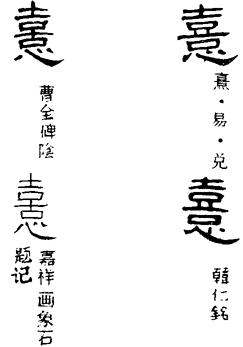 憙
熹·易·兑
憙
韓仁銘
憙
曹全碑陰
憙
嘉祥画象石
题记